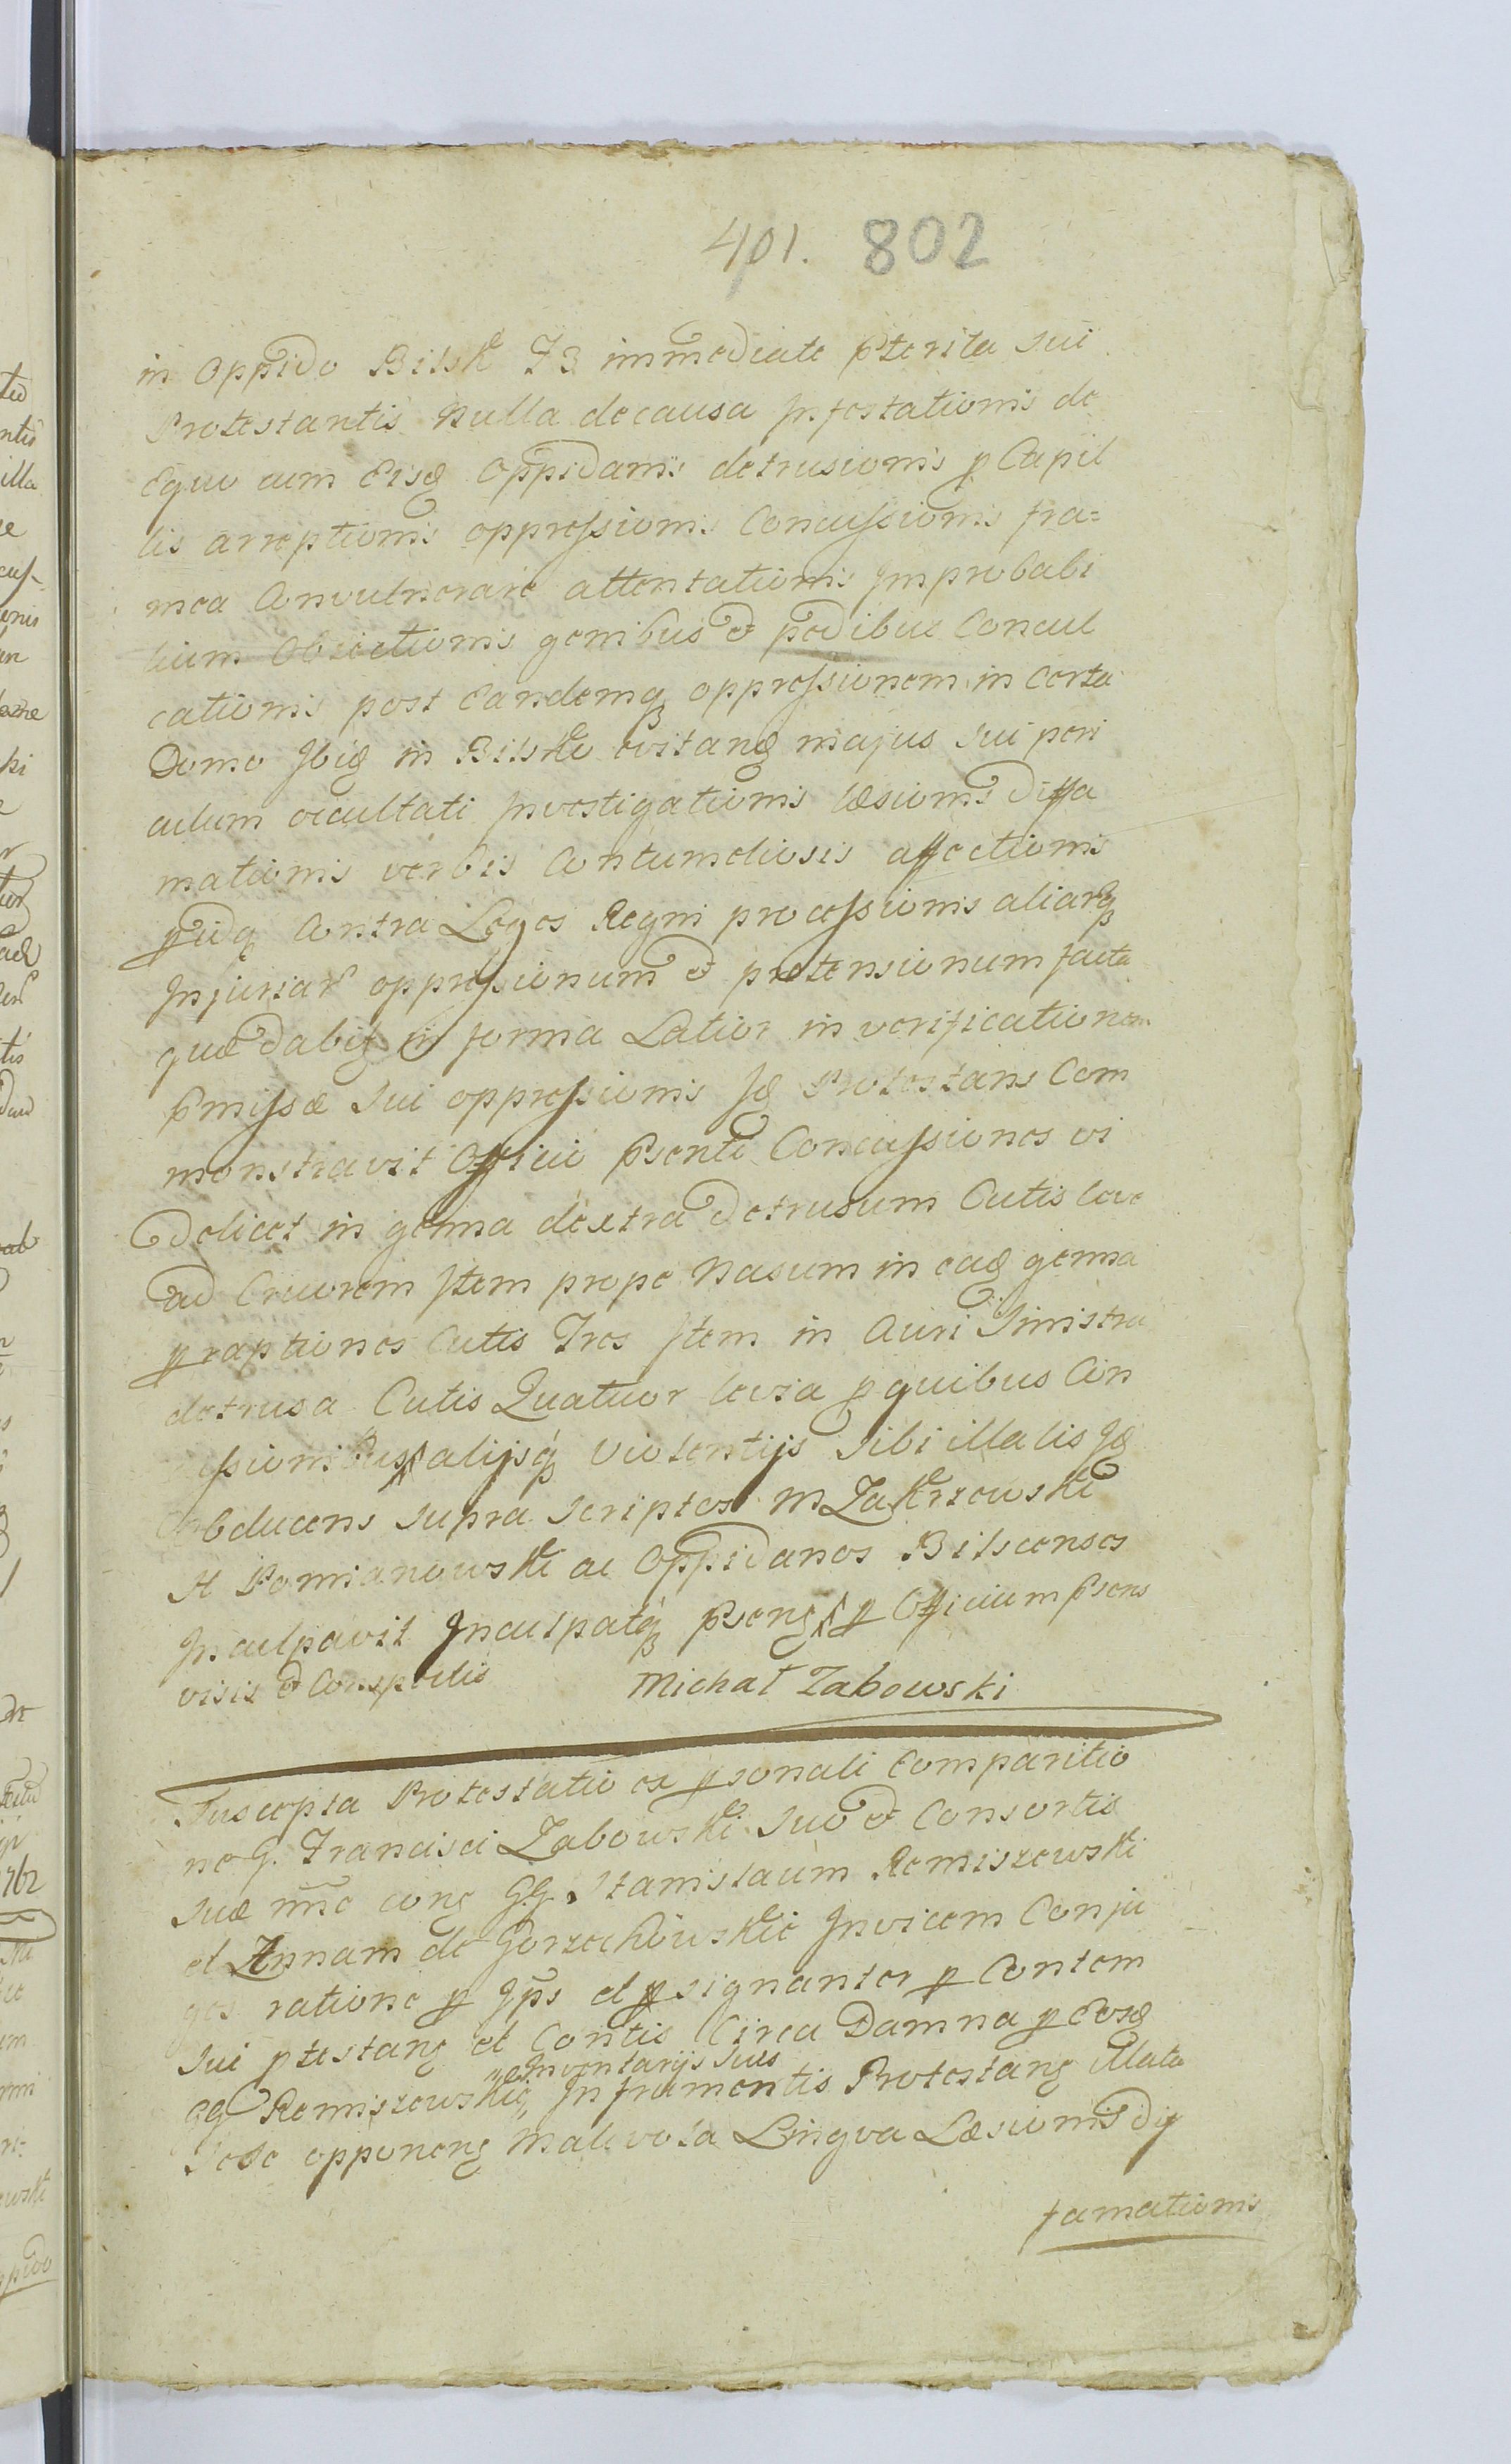 401. 802
in Oppido Bilsk F3 immediate pterita sui
Protestantis Nulla de causa Infestationis de
Equo cum Eisd Oppidanis detrusionis p Capil
lis arreptionis oppressionis Concussionis fra=
mea Convulnerare attentationis Improbabi
lium Obiectionis genibus et pedibus Concul
cationis post Eandemq oppressionem in Certa
Domo Ibid in Bilsk evitand majus sui peri
culum occultati Investigationis læsionis diffa
mationis verbis Contumeliosis affectionis
pudq Contra Leges Regni processionis aliarq
Injuriar oppressionum et prætensionum facta
quæ dabit in forma Latior in verificationem
pmissæ sui oppressionis Id Protestans Com
monstravit Officio psenti Concussiones vi
delicet in genna dextra detrusum Cutis leve
ad Cruorem Item prope Nasum in ead genna
praptiones Cutis Tres Item in Auri Sinistra
detrusa Cutis Quatuor levia p quibus Con
cussionibus alijsq violentijs sibi illatis Id
Obducens supra scriptos M Zakrzewski
et Pomianowski ac Oppidanos Bilscenses
Inculpavit Inculpatq psens p Officium psens
visis et Conspectis Michał Zabowski
Suscepta Protestatio ex psonali Comparitio
ne G. Francisci Zabowski suo et Consortis
suæ nne cong GG. Stanislaum Remiszewski
et Annam de Gorzechowskie Invicem Conju
ges ratione p Ips et signanter p Contem
sui ptestang et Contis Circa Damna p Eosd
GG Remiszewskie Inventarijs suis In frumentis Protestang illata
sese opponeng Malevola Lingva Læsionis dif
famationis